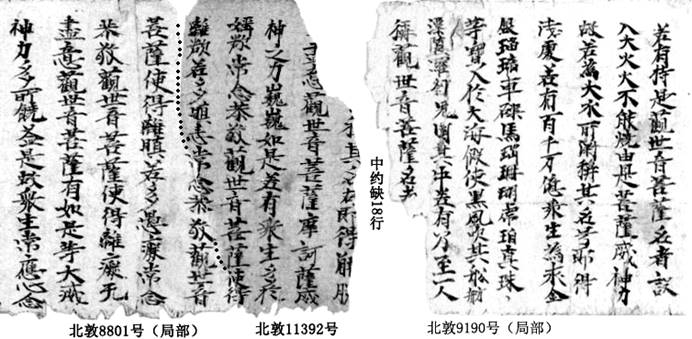 若有持是觀世音菩薩名者設
入大火火不能燒由是菩薩威神力
故若為大水所漂稱其名号即得
淺處若有百千万億衆生為求金
銀瑠璃車磲馬瑙珊瑚虎珀真珠
等寶入於大海假使黑風吹其船舫
漂墮羅刹鬼國其中若有乃至一人
稱觀世音菩薩名者
中约缺18行
其名即得解脫
盡意觀世音菩薩摩訶薩威
神之力巍巍如是若有衆生多於
婬欲常念恭敬觀世音菩薩便得
離欲若多瞋恚常念恭敬觀世音
菩薩便得離瞋若多愚癡常念
恭敬觀世音菩薩便得離癡无
盡意觀世音菩薩有如是等大威
神力多所饒益是故衆生常應心念
北敦8801号（局部）
北敦11392号
北敦9190号（局部）